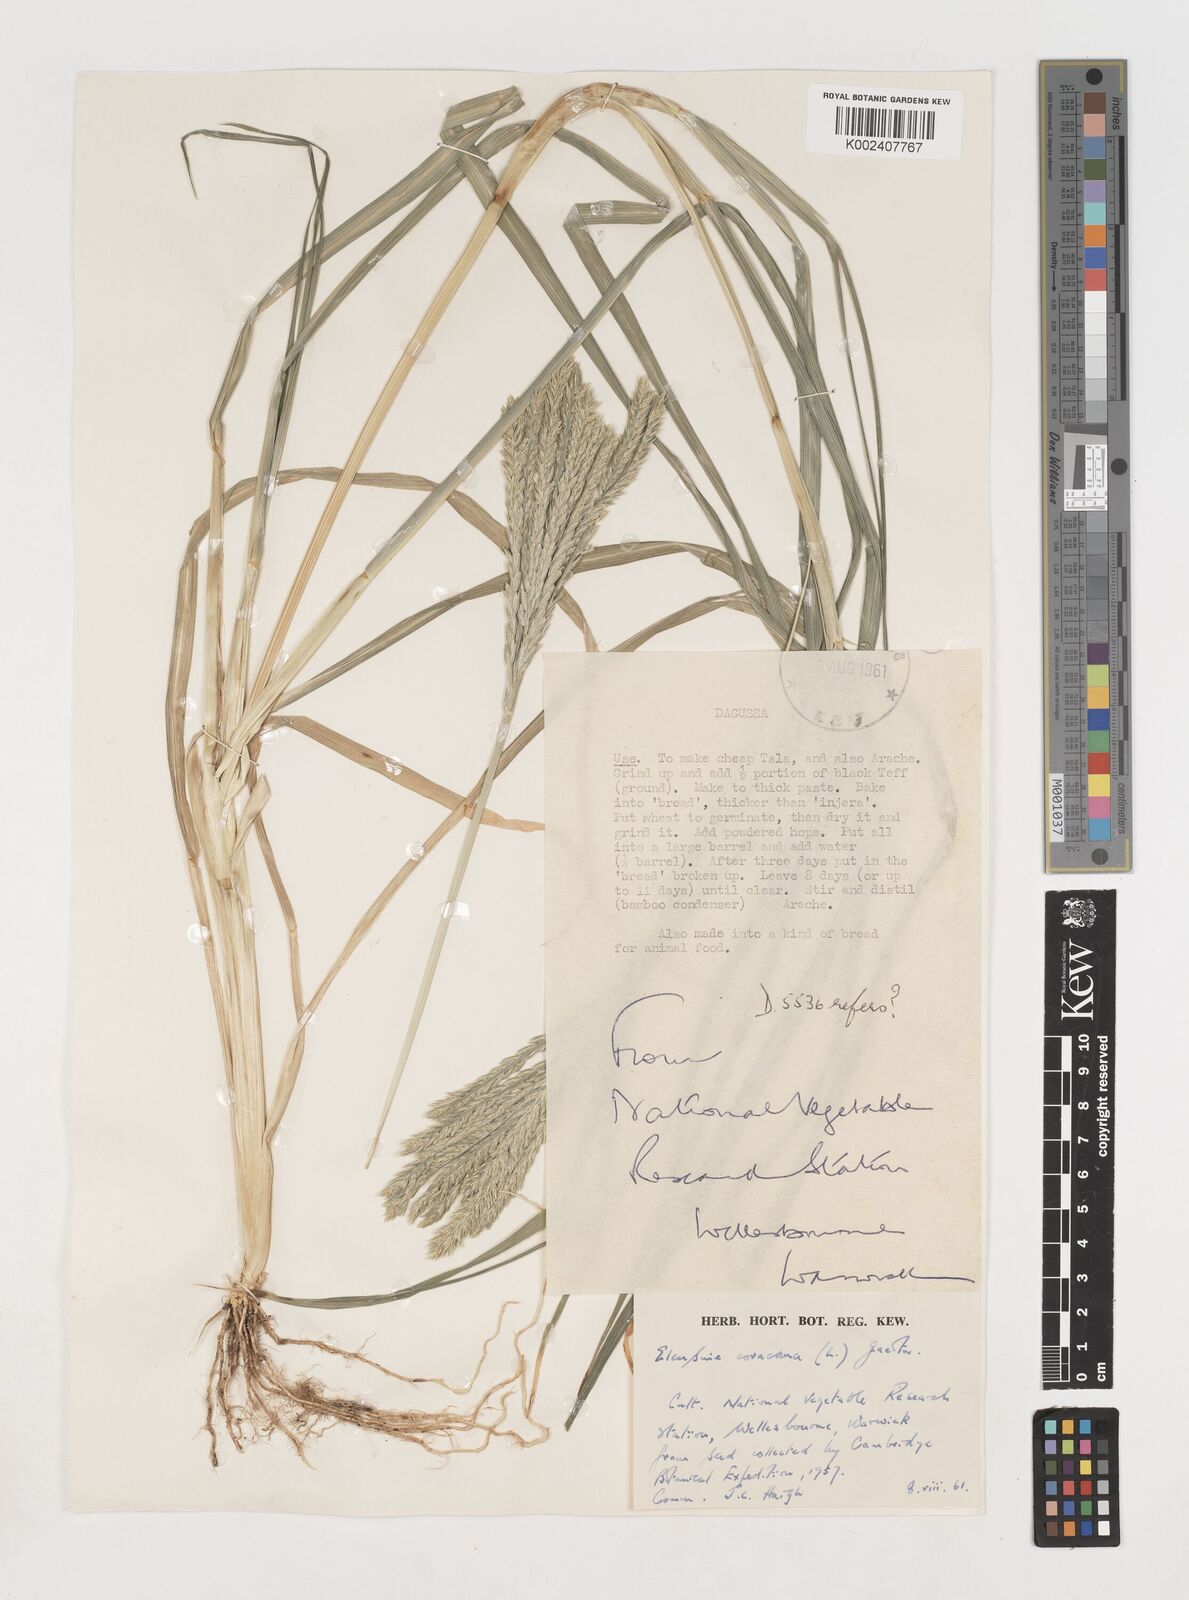 ROYAL BOTANIC GARDENS KEW
K002407767
AUG 1961
DAGUSSA
Use. To make cheap Tala, and also Arache.
Grind up and add ½ portion of black Teff
(ground). Make to thick paste. Bake
into 'bread', thicker than 'injera'.
Put wheat to germinate, then dry it and
grind it. Add powdered hops. Put all
into a large barrel and add water
barrel). After three days put in the
'bread' broken up. Leave 8 days (or up
to 11 days) until clear. Stir and distil
(bamboo condenser) Arache.
Also made into a kind of bread
for animal food.
D.5536 refers?
From
National Vegetable
Research Station
Wellesbourne
Warwick
HERB. HORT. BOT. REG. KEW.
Eleusine coracana (L.) Gaertn.
Cult. National Vegetable Research
Station, Wellesbourne, Warwick
from seed collected by Cambridge
Botanical Expedition, 1957.
Comm. J.C. Haigh
8.viii.61.
inches
Density
Don Williams
centimeters
M001037
Royal Botanic Gardens
Kew
copyright reserved
0 1 2 3 4 5 6 7 8 9 10
cm